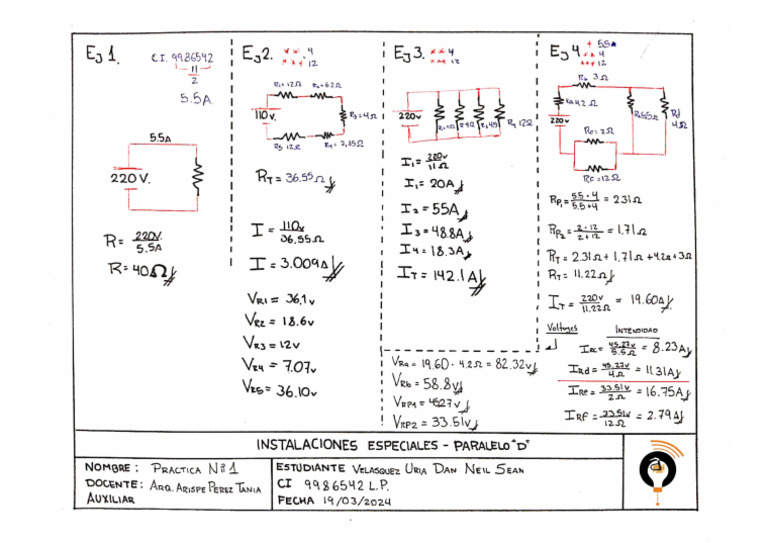 Ej 1.
C.I. 9986542
11
2
5.5A.
5.5A
220V.
R = 220V. / 5.5A
R = 40Ω
Ej2.
** 4
*** 12
R1=12Ω
R2=6.2Ω
110V.
R3=4Ω
R5 12Ω
R4=2,35Ω
RT = 36.55Ω
I = 110v / 36.55Ω
I = 3.009A
VR1 = 36.1v
VR2 = 18.6v
VR3 = 12v
VR4 = 7.07v
VR5 = 36.10v
Ej3.
** 4
*** 12
220v
R4 12Ω
I1 = 220v / 11Ω
I1 = 20A
I2 = 55A
I3 = 48.8A
I4 = 18.3A
IT = 142.1A
VRa = 19.60 · 4.2Ω = 82.32v
VRb = 58.8v
VRP1 = 45.27v
VRP2 = 33.51v
Ej 4.
* 5.5A
** 4
*** 12
Rb 3Ω
Ra 4.2Ω
220v
Rc 5.5Ω
Rd 4Ω
Re = 2Ω
RF = 12Ω
RP1 = 5.5 · 4 / 5.5 + 4 = 2.31Ω
RP2 = 2 · 12 / 2 + 12 = 1.71Ω
RT = 2.31Ω + 1.71Ω + 4.2Ω + 3Ω
RT = 11.22Ω
IT = 220v / 11.22Ω = 19.60A
Voltages
INTENCIDAD
IRc = 45.27v / 5.5Ω = 8.23A
IRd = 45.27v / 4Ω = 11.31A
IRe = 33.51v / 2Ω = 16.75A
IRF = 33.51v / 12Ω = 2.79A
INSTALACIONES ESPECIALES - PARALELO "D"
NOMBRE: PRACTICA Nº1
DOCENTE: ARQ. ARISPE PEREZ TANIA
AUXILIAR
ESTUDIANTE VELASQUEZ URIA DAN NEIL SEAN
CI 9986542 L.P.
FECHA 19/03/2024